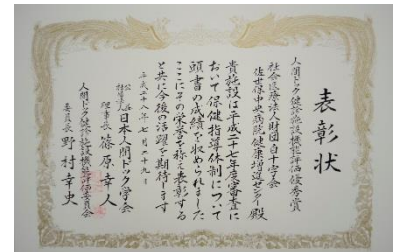 表彰状
人間ドック健診施設機能評価優秀賞
社会医療法人財団白十字会
佐世保中央病院健康増進センター殿
貴施設は平成二十七年度審査に
おいて保健指導体制について
頭書の成績を収められました
ここにその栄誉を称え表彰する
と共に今後の活躍を期待します
平成二十八年七月二十九日
公益社団法人日本人間ドック学会
理事長 篠原幸人
人間ドック健診施設機能評価委員会
委員長 野村幸史